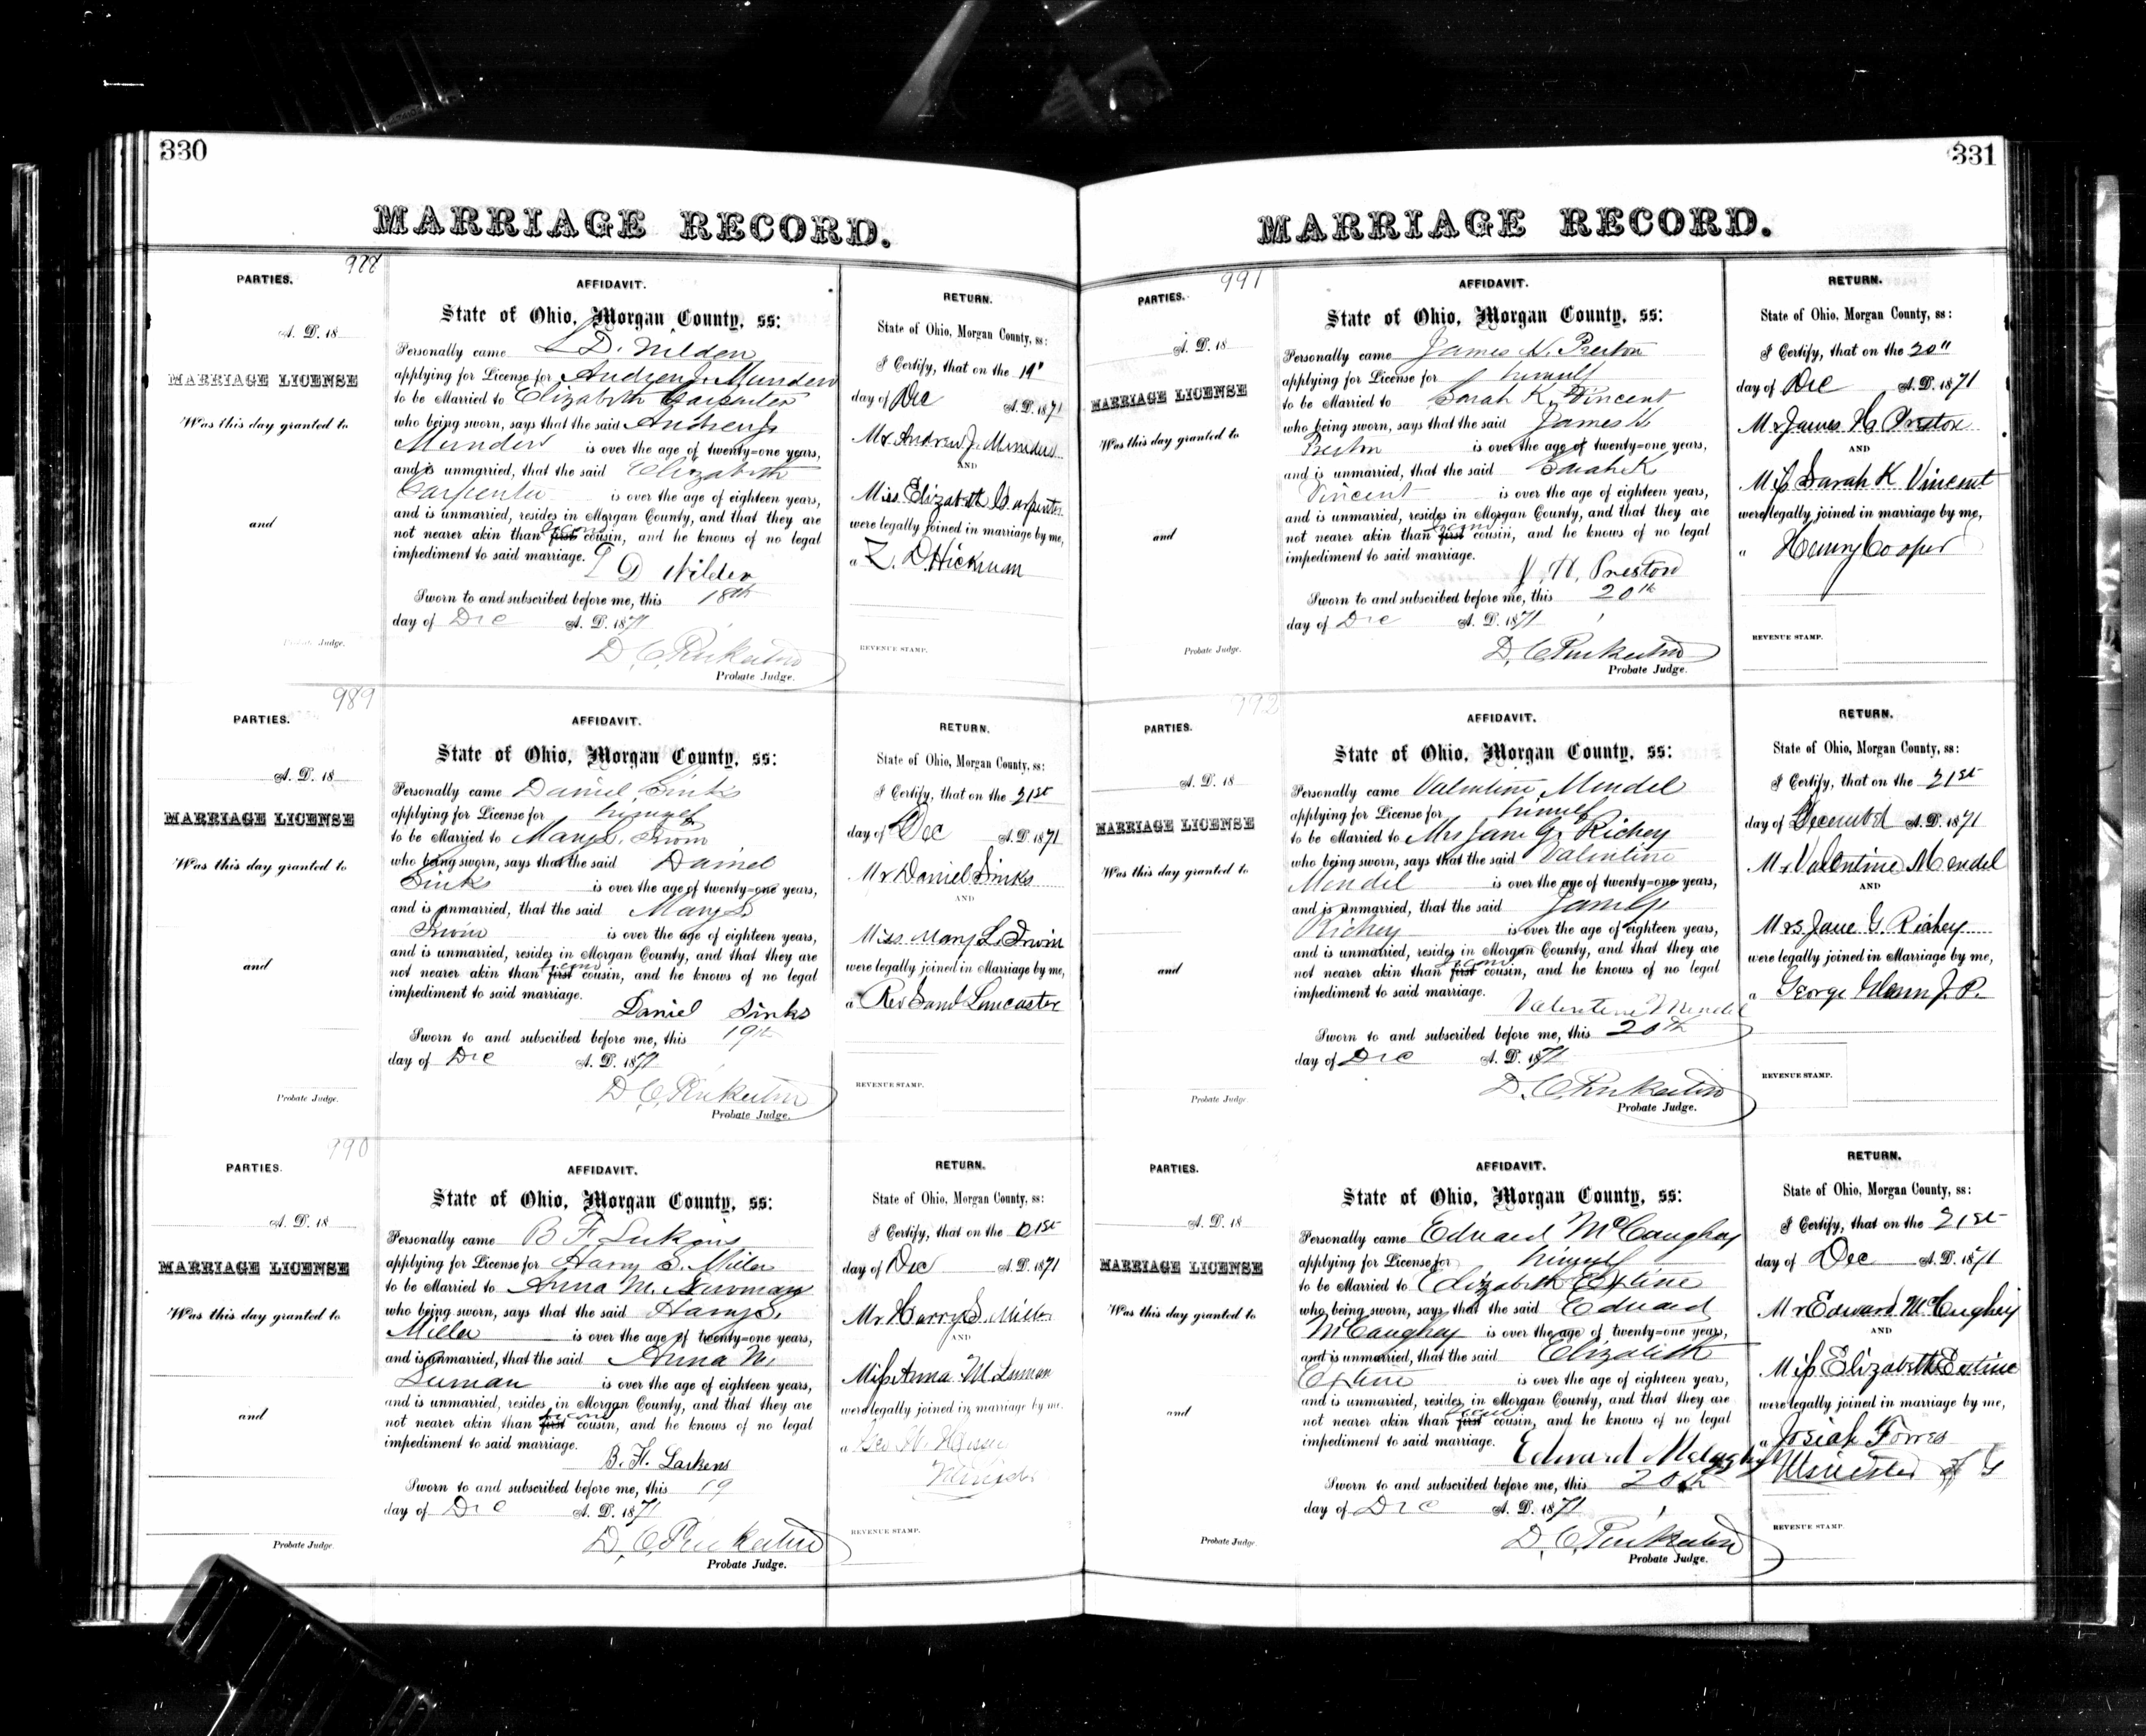 330
MARRIAGE RECORD.
988
PARTIES.
A. D. 18
MARRIAGE LICENSE
Was this day granted to
and
Probate Judge.
AFFIDAVIT.
State of Ohio, Morgan County, ss:
Personally came D. Wilden
applying for License for Andrew J. Munden
to be Married to Elizabeth Carpenter
who being sworn, says that the said Andrew J.
is over the age of twenty-one years,
and is unmarried, that the said Elizabeth
Carpenter is over the age of eighteen years,
and is unmarried, resides in Morgan County, and that they are
second
not nearer akin than first cousin, and he knows of no legal
impediment to said marriage.
D Wilden
Sworn to and subscribed before me, this 18th
day of Dec A. D. 1871
D. C. Pinkerton
Probate Judge.
RETURN.
State of Ohio, Morgan County, ss:
I Certify, that on the 19"
day of Dec A. D. 1871
Mr Andrew J. Munden
AND
Miss Elizabeth Carpenter
were legally joined in marriage by me,
a Z. D. Hickman
REVENUE STAMP.
989
PARTIES.
A. D. 18
MARRIAGE LICENSE
Was this day granted to
and
Probate Judge.
AFFIDAVIT.
State of Ohio, Morgan County, ss:
Personally came Daniel Sinks
applying for License for himself
to be Married to Mary S. Irwin
who being sworn, says that the said Daniel
Sinks is over the age of twenty-one years,
and is unmarried, that the said Mary S.
Irwin is over the age of eighteen years,
and is unmarried, resides in Morgan County, and that they are
second
not nearer akin than first cousin, and he knows of no legal
impediment to said marriage.
Daniel Sinks
Sworn to and subscribed before me, this 19th
day of Dec A. D. 1871
D. C. Pinkerton
Probate Judge.
RETURN.
State of Ohio, Morgan County, ss:
I Certify, that on the 21st
day of Dec A. D. 1871
Mr Daniel Sinks
AND
Miss Mary L. Irwin
were legally joined in Marriage by me,
a Rev Saml Lancaster
REVENUE STAMP.
990
PARTIES.
A. D. 18
MARRIAGE LICENSE
Was this day granted to
and
Probate Judge.
AFFIDAVIT.
State of Ohio, Morgan County, ss:
Personally came B F Lukens
applying for License for Harry S. Miller
to be Married to Anna M.
who being sworn, says that the said Harry S.
Miller is over the age of twenty-one years,
and is unmarried, that the said Anna M.
is over the age of eighteen years,
and is unmarried, resides in Morgan County, and that they are
second
not nearer akin than first cousin, and he knows of no legal
impediment to said marriage.
B. F. Larkens
Sworn to and subscribed before me, this 19
day of Dec A. D. 1871
D. C. Pinkerton
Probate Judge.
RETURN.
State of Ohio, Morgan County, ss:
I Certify, that on the 21st
day of Dec A. D. 1871
Mr Harry S. Miller
AND
Miss Anna M
were legally joined in marriage by me,
a Geo W.
Minister
REVENUE STAMP.
331
MARRIAGE RECORD.
991
PARTIES.
A. D. 18
MARRIAGE LICENSE
Was this day granted to
and
Probate Judge.
AFFIDAVIT.
State of Ohio, Morgan County, ss:
Personally came James H. Preston
applying for License for himself
to be Married to Sarah K. Vincent
who being sworn, says that the said James H.
Preston is over the age of twenty-one years,
and is unmarried, that the said Sarah K
Vincent is over the age of eighteen years,
and is unmarried, resides in Morgan County, and that they are
second
not nearer akin than first cousin, and he knows of no legal
impediment to said marriage.
J. H. Preston
Sworn to and subscribed before me, this 20th
day of Dec A. D. 1871
D. C. Pinkerton
Probate Judge.
RETURN.
State of Ohio, Morgan County, ss:
I Certify, that on the 20"
day of Dec A. D. 1871
Mr James H. Preston
AND
Miss Sarah K Vincent
were legally joined in marriage by me,
a Henry Cooper
REVENUE STAMP.
992
PARTIES.
A. D. 18
MARRIAGE LICENSE
Was this day granted to
and
Probate Judge.
AFFIDAVIT.
State of Ohio, Morgan County, ss:
Personally came Valentine Mendel
applying for License for himself
to be Married to Mrs Jane G. Richey
who being sworn, says that the said Valentine
Mendel is over the age of twenty-one years,
and is unmarried, that the said Jane G.
Richey is over the age of eighteen years,
and is unmarried, resides in Morgan County, and that they are
second
not nearer akin than first cousin, and he knows of no legal
impediment to said marriage.
Valentine Mendel
Sworn to and subscribed before me, this 20th
day of Dec A. D. 1871
D. C. Pinkerton
Probate Judge.
RETURN.
State of Ohio, Morgan County, ss:
I Certify, that on the 21st
day of December A. D. 1871
Mr Valentine Mendel
AND
Mrs Jane G. Richey
were legally joined in Marriage by me,
a George J. P.
REVENUE STAMP.
PARTIES.
A. D. 18
MARRIAGE LICENSE
Was this day granted to
and
Probate Judge.
AFFIDAVIT.
State of Ohio, Morgan County, ss:
Personally came Edward McCaughey
applying for License for himself
to be Married to Elizabeth Exline
who being sworn, says that the said Edward
McCaughey is over the age of twenty-one years,
and is unmarried, that the said Elizabeth
Exline is over the age of eighteen years,
and is unmarried, resides in Morgan County, and that they are
second
not nearer akin than first cousin, and he knows of no legal
impediment to said marriage.
Edward
Sworn to and subscribed before me, this 20th
day of Dec A. D. 1871
D. C. Pinkerton
Probate Judge.
RETURN.
State of Ohio, Morgan County, ss:
I Certify, that on the 21st
day of Dec A. D. 1871
Mr Edward McCaughey
AND
Miss Elizabeth Exline
were legally joined in marriage by me,
a Josiah Forres
Minister of G
REVENUE STAMP.